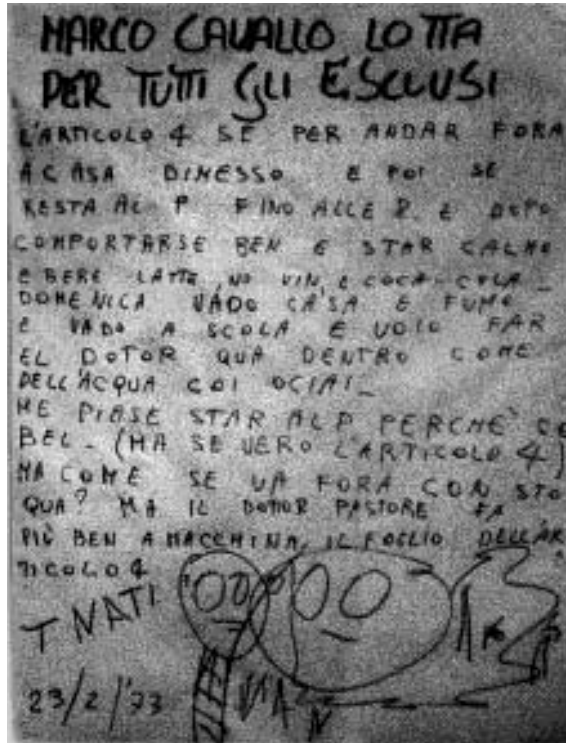 MARCO CAVALLO LOTTA
PER TUTTI GLI ESCLUSI
L'ARTICOLO 4 SE PER ANDAR FORA
A CASA DIMESSO E POI SE
RESTA AL P FINO ALLE 8 E DOPO
COMPORTARSE BEN E STAR CALMO
E BERE LATTE, NO VIN, E COCA-COLA_
DOMENICA VADO CASA E FUMO
E VADO A SCOLA E VOIO FAR
EL DOTOR QUA DENTRO COME
DELL'ACQUA COI OCIAI_
ME PIASE STAR AL P PERCHE'
BEL_ (MA SE VERO L'ARTICOLO 4)
MA COME SE VA FORA CON STO
QUA? MA IL DOTOR PASTORE FA
PIÙ BEN A MACCHINA, IL FOGLIO DELL'AR
TICOLO 4
T NATI
23/2/'73